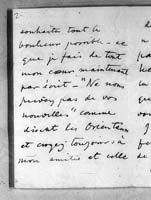 2.
souhaite tout le
bonheur possible – ce
que je fais de tout
mon cœur maintenant
par écrit – "Ne nous
privez pas de vos
nouvelles" comme
disent les Orientaux
et croyez toujours à
mon amitié et celle de